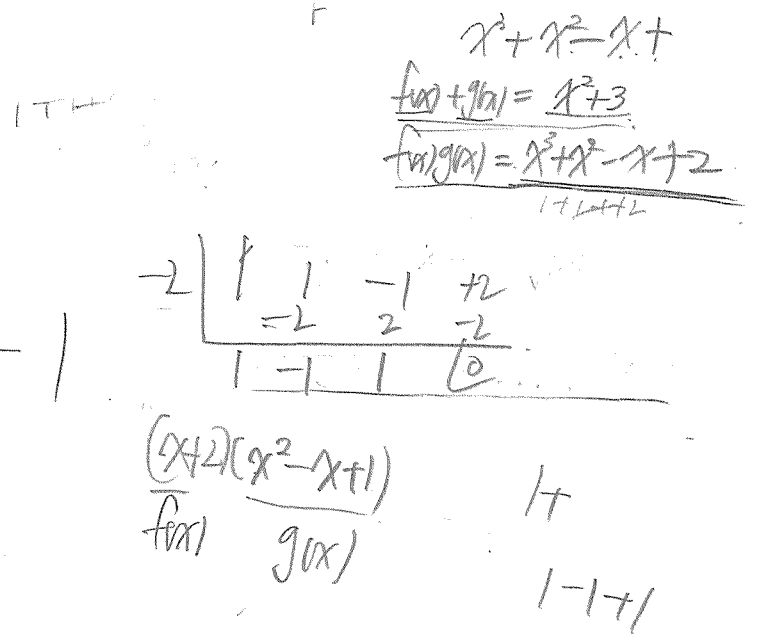 x³+x²-x+
f(x)+g(x)= x²+3
f(x)g(x)= x³+x²-x+2
-2 1 1 -1 +2
-2 2 -2
1 -1 1 0
-1
(x+2)(x²-x+1)
f(x) g(x)
1+
1-1+1